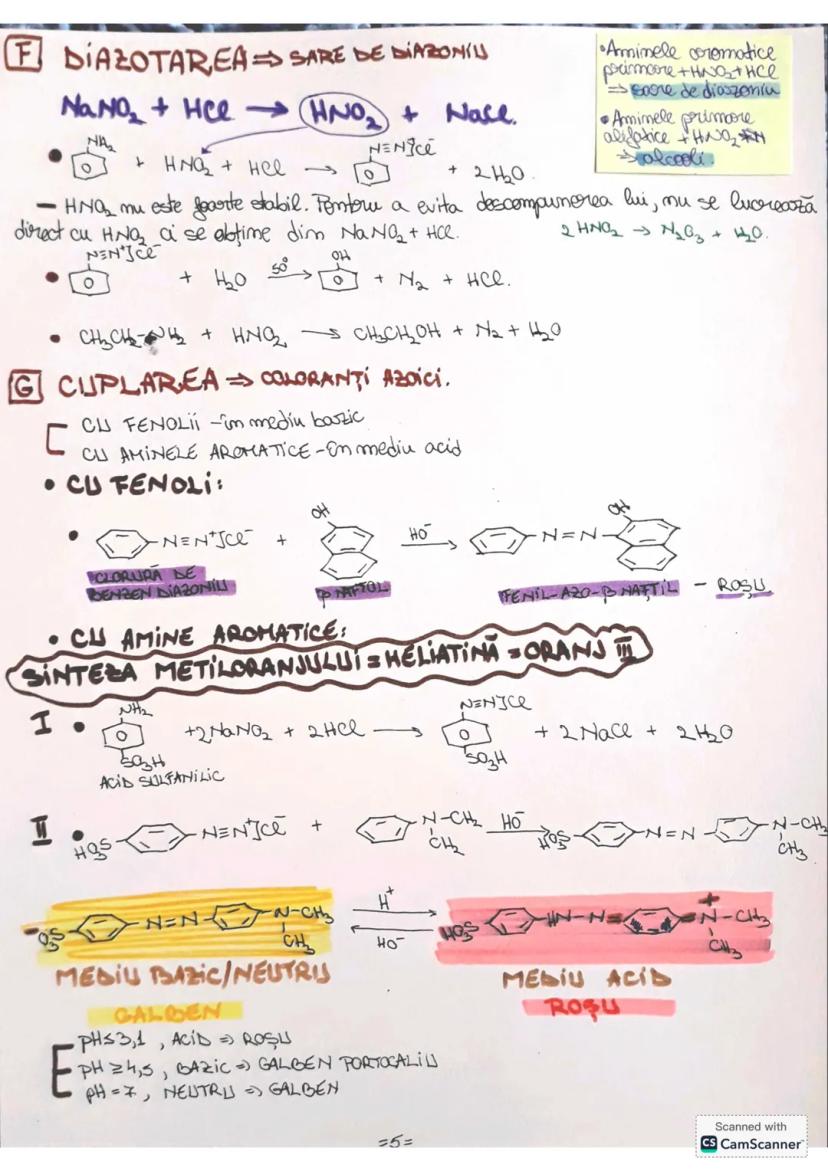 F DIAZOTAREA ⇒ SARE DE DIAZONIU
NaNO₂ + HCl → HNO₂ + NaCl.
• Aminele aromatice
primare + HNO₂ + HCl
⇒ sare de diazoniu
• Aminele primare
alifatice + HNO₂
⇒ alcooli
NH₂ N≡N⁺]Cl⁻
• + HNO₂ + HCl → + 2H₂O.
— HNO₂ nu este foarte stabil. Pentru a evita descompunerea lui, nu se lucrează
direct cu HNO₂ ci se obține din NaNO₂ + HCl. 2HNO₂ → N₂O₃ + H₂O.
N≡N⁺]Cl⁻ OH
• + H₂O 50° → + N₂ + HCl.
• CH₃CH₂-NH₂ + HNO₂ → CH₃CH₂OH + N₂ + H₂O
G CUPLAREA ⇒ COLORANȚI AZOICI.
CU FENOLII - în mediu bazic
CU AMINELE AROMATICE - în mediu acid
• CU FENOLI:
OH OH
• -N≡N⁺]Cl⁻ + HO⁻ → -N=N-
CLORURĂ DE
BENZEN DIAZONIU
β NAFTOL
FENIL-AZO-β NAFTIL - ROȘU
• CU AMINE AROMATICE:
SINTEZA METILORANJULUI = HELIATINĂ = ORANJ III
NH₂ N≡N⁺]Cl
I • + 2NaNO₂ + 2HCl → + 2NaCl + 2H₂O
SO₃H SO₃H
ACID SULFANILIC
II • HO₃S- -N≡N⁺]Cl⁻ + -N-CH₂ HO⁻ → HO₃S- -N=N- -N-CH₃
CH₂ CH₃
⁻O₃S- -N=N- -N-CH₃ H⁺ HO⁻ HO₃S- -HN-N= =N⁺-CH₃
CH₃ CH₃
MEDIU BAZIC/NEUTRU MEDIU ACID
GALBEN ROȘU
pH≤3,1 , ACID ⇒ ROȘU
pH ≥4,5 , BAZIC ⇒ GALBEN PORTOCALIU
pH = 7 , NEUTRU ⇒ GALBEN
=5=
Scanned with
CS CamScanner